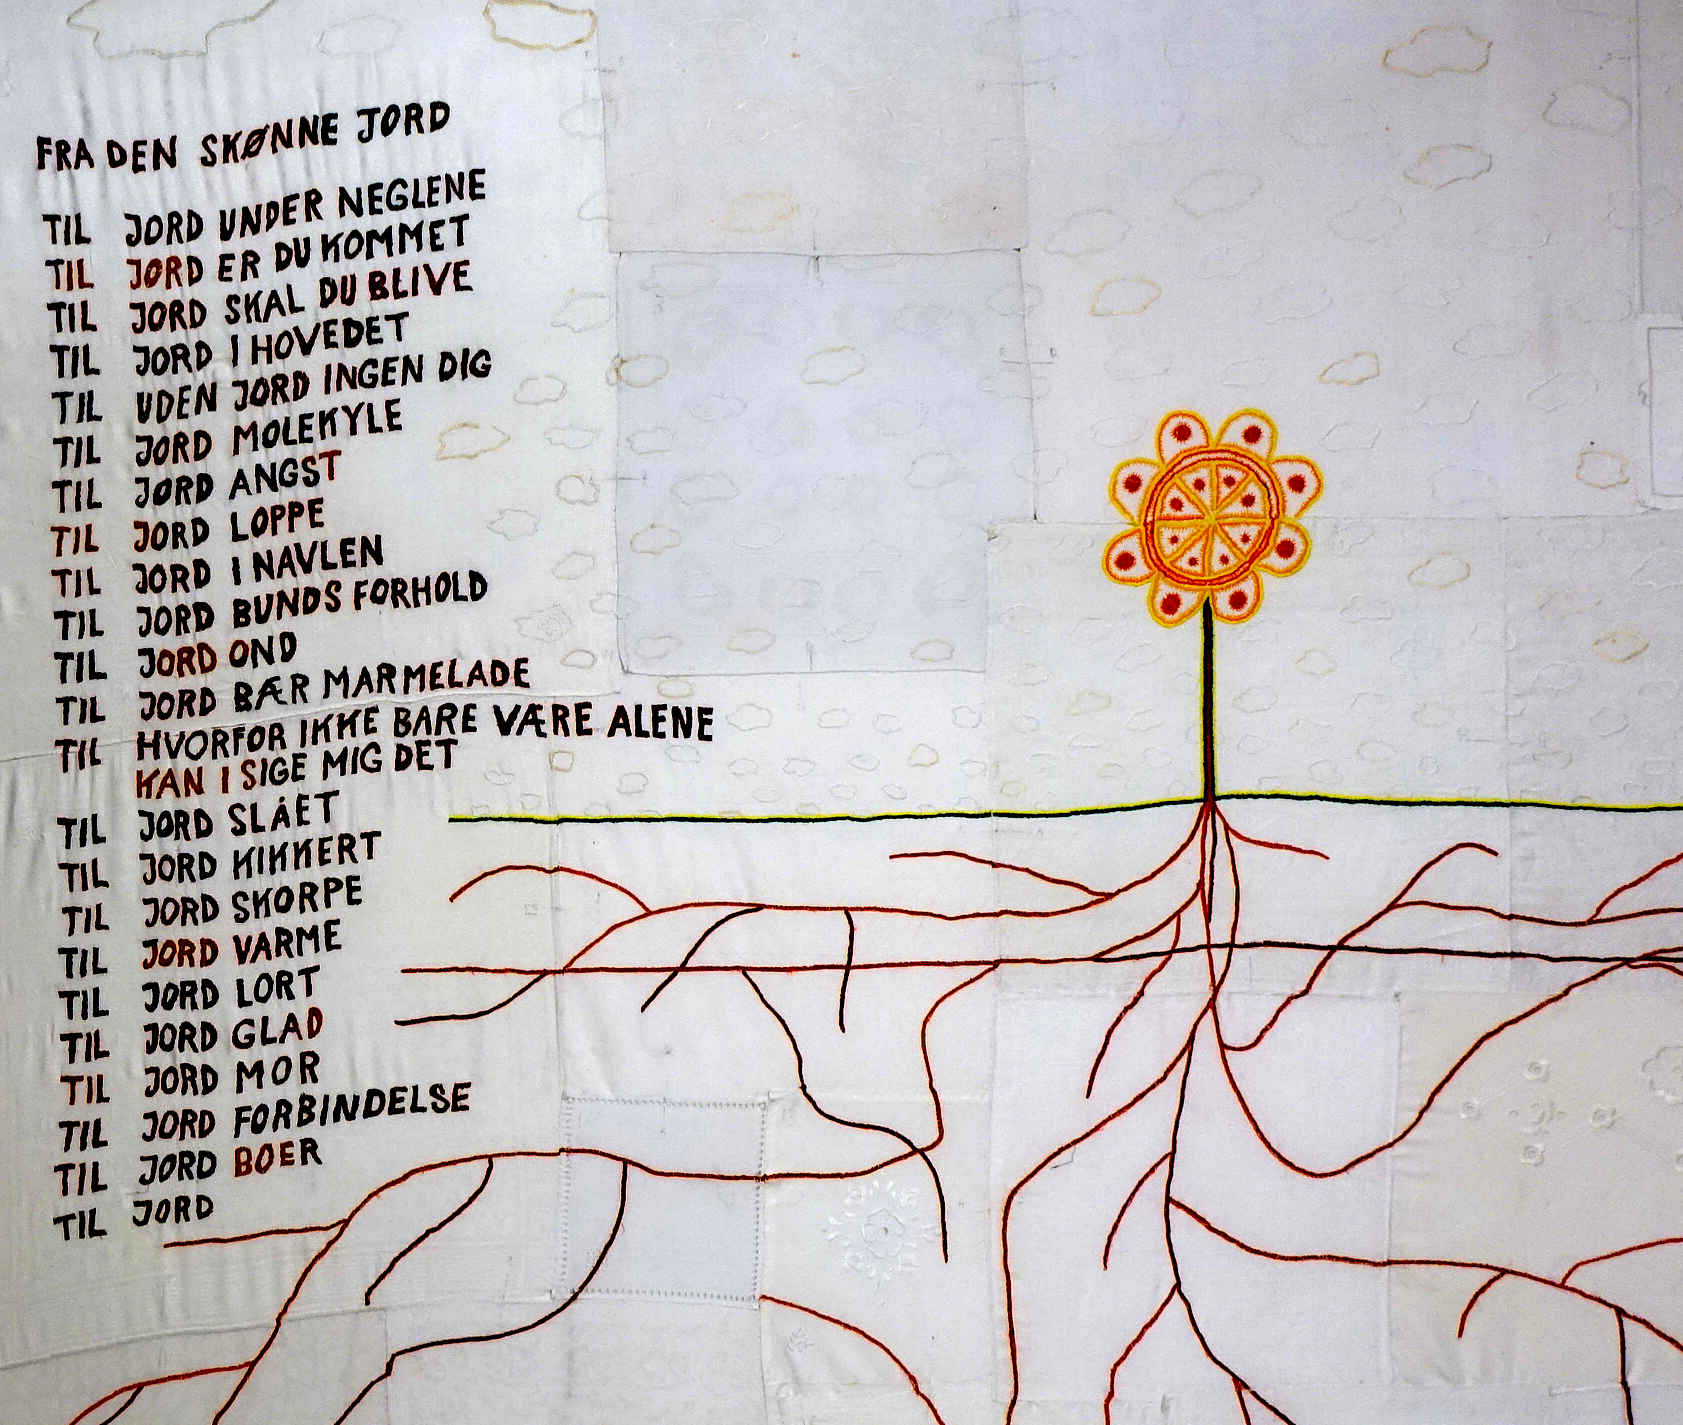 FRA DEN SKØNNE JORD
TIL JORD UNDER NEGLENE
TIL JORD ER DU KOMMET
TIL JORD SKAL DU BLIVE
TIL JORD I HOVEDET
TIL UDEN JORD INGEN DIG
TIL JORD MOLEKYLE
TIL JORD ANGST
TIL JORD LOPPE
TIL JORD I NAVLEN
TIL JORD BUNDS FORHOLD
TIL JORD OND
TIL JORD BÆR MARMELADE
TIL HVORFOR IKKE BARE VÆRE ALENE
KAN I SIGE MIG DET
TIL JORD SLÅET
TIL JORD KIKKERT
TIL JORD SKORPE
TIL JORD VARME
TIL JORD LORT
TIL JORD GLAD
TIL JORD MOR
TIL JORD FORBINDELSE
TIL JORD BOER
TIL JORD